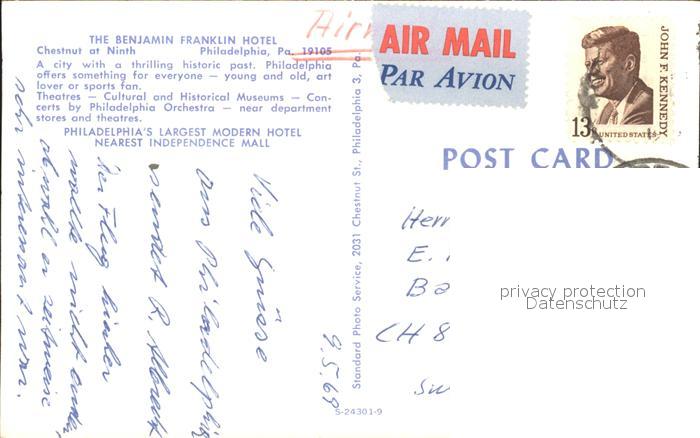 THE BENJAMIN FRANKLIN HOTEL
Chestnut at Ninth Philadelphia, Pa. 19105
A city with a thrilling historic past. Philadelphia
offers something for everyone — young and old, art
lover or sports fan.
Theatres — Cultural and Historical Museums — Con-
certs by Philadelphia Orchestra — near department
stores and theatres.
PHILADELPHIA'S LARGEST MODERN HOTEL
NEAREST INDEPENDENCE MALL
9.5.69
Viele Grüsse
aus Philadelphia
sendet R. Albrecht
Der Flug hierher
wollte nicht enden
obwohl er zeitweise
sehr interessant war.
Standard Photo Service, 2031 Chestnut St., Philadelphia 3, Pa.
S-24301-9
AIR MAIL
PAR AVION
JOHN F. KENNEDY
13¢ UNITED STATES
POST CARD
Herr
E.
Ba
CH 8
privacy protection
Datenschutz